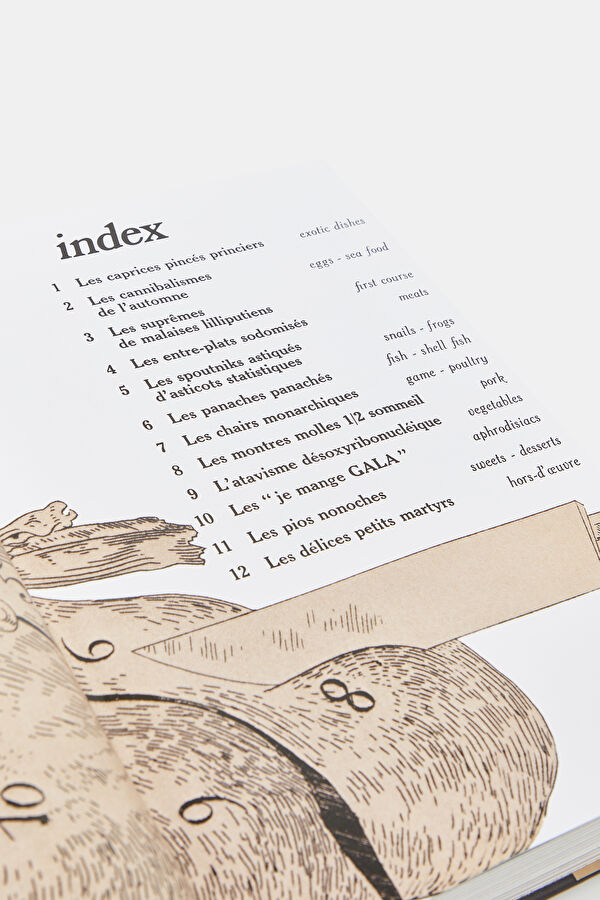 index
1 Les caprices pincés princiers exotic dishes
2 Les cannibalismes
de l'automne eggs - sea food
3 Les suprêmes
de malaises lilliputiens first course
4 Les entre-plats sodomisés meats
5 Les spoutniks astiqués
d'asticots statistiques snails - frogs
6 Les panaches panachés fish - shell fish
7 Les chairs monarchiques game - poultry
8 Les montres molles 1/2 sommeil pork
9 L'atavisme désoxyribonucléique vegetables
10 Les “ je mange GALA” aphrodisiacs
11 Les pios nonoches sweets - desserts
12 Les délices petits martyrs hors-d'œuvre
8
10